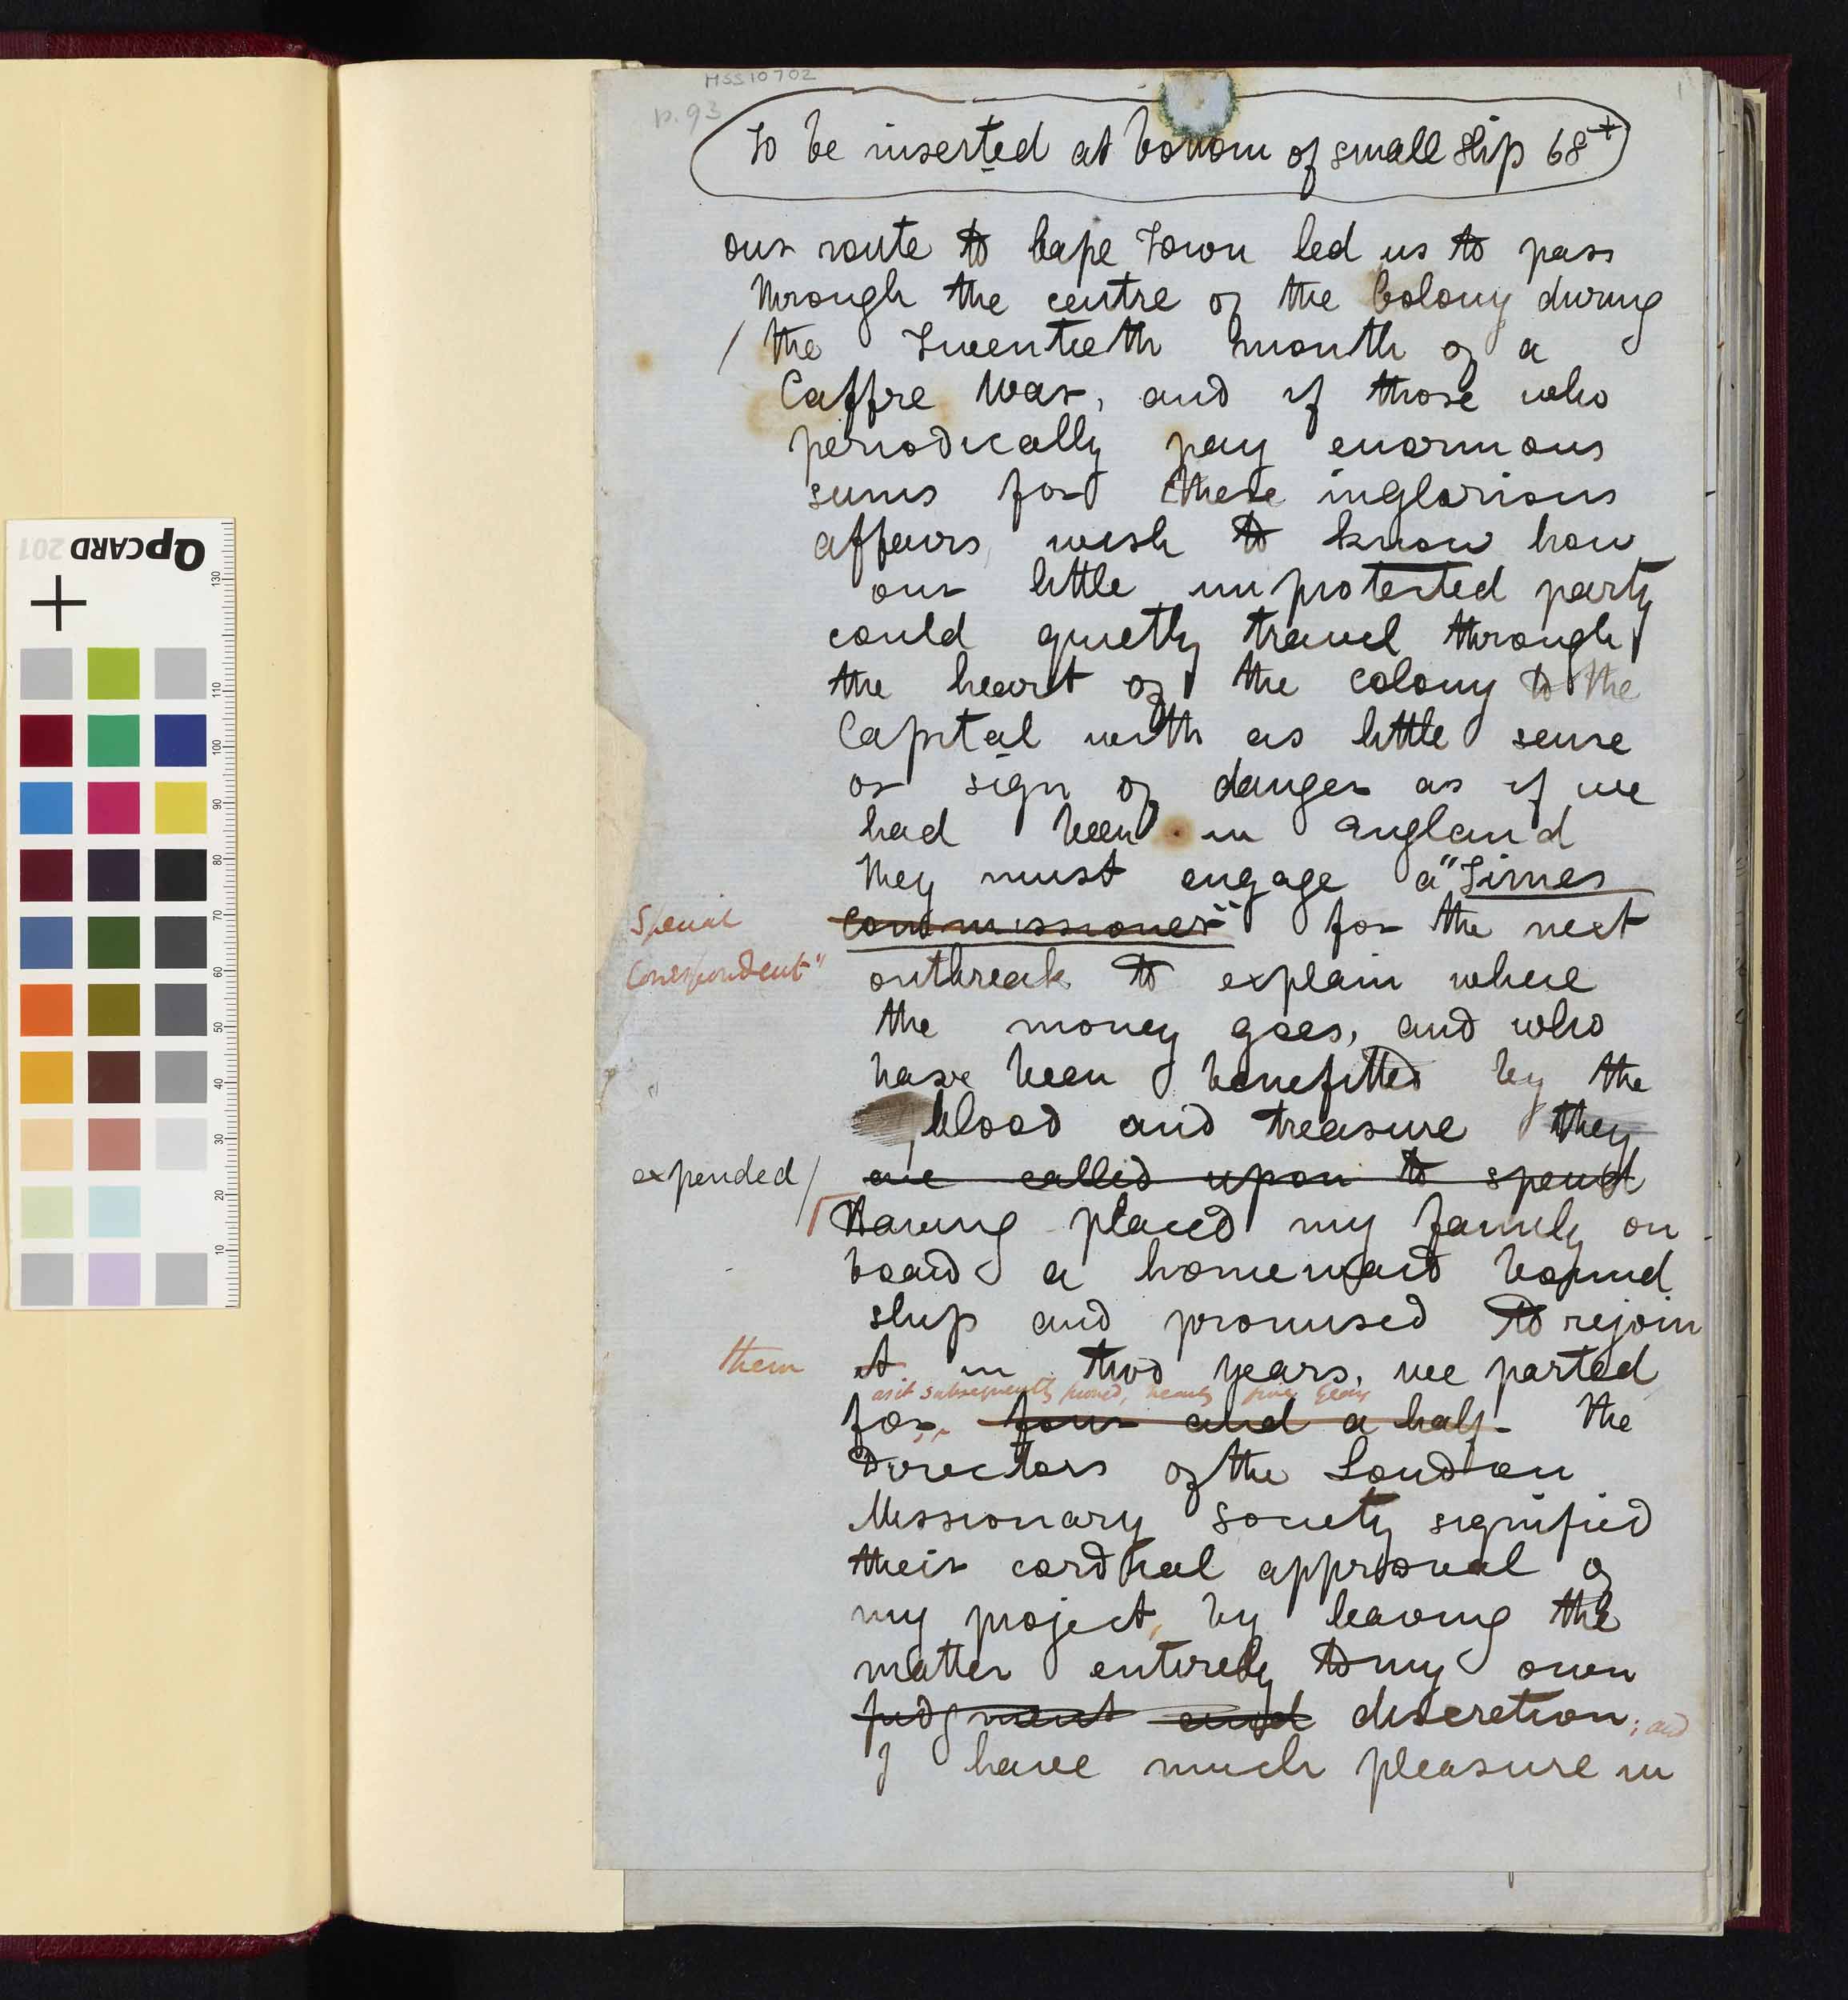 MSS10702
p. 93
1
To be inserted at bottom of small slip 68+
our route to Cape Town led us to pass
through the centre of the Colony during
/ the Twentieth month of a
Caffre War, and if those who
periodically pay enormous
sums for these inglorious
affairs wish to know how
our little unprotected party
could quietly travel through
the heart of the colony to the
Capital with as little sense
or sign of danger as if we
had been in England
they must engage a "Times
Special
Correspondent"
Commissioner" for the next
outbreak to explain where
the money goes, and who
have been benefitted by the
blood and treasure they
expended / are called upon to spend
Having placed my family on
board a homeward bound
ship and promised to rejoin
them it in two years, we parted
as it subsequently proved, nearly five years
for four and a half. The
Directors of the London
Missionary Society signified
their cordial approval of
my project, by leaving the
matter entirely to my own
judgment and discretion; and
I have much pleasure in
QPCARD 201
130
110
100
90
80
70
60
50
40
30
20
10